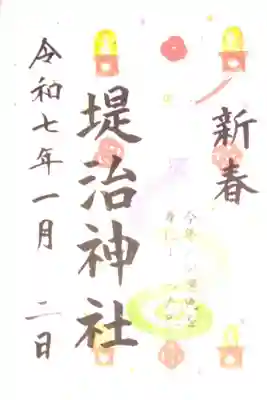 新春
堤治神社
令和七年一月 二日